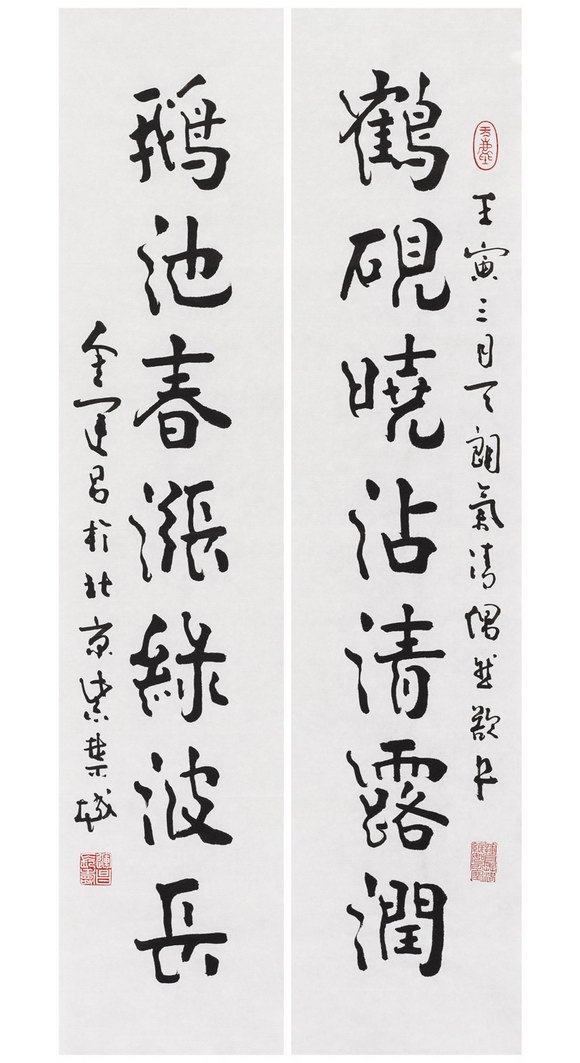 壬寅三月天朗氣清偶然欲书
鶴硯曉沾清露潤
鵝池春漲綠波長
金運昌於北京紫禁城